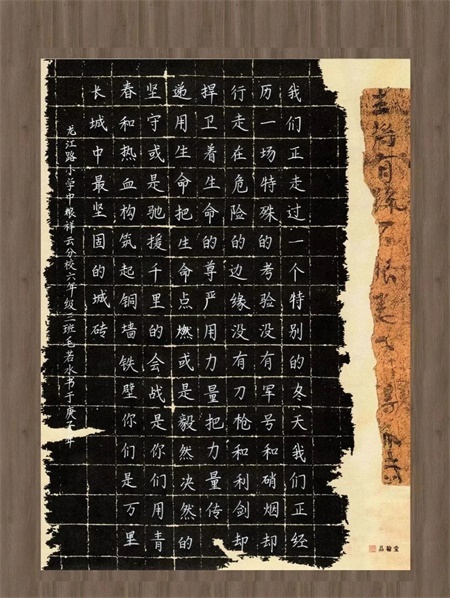 我们正走过一个特别的冬天我们正经
历一场特殊的考验没有军号和硝烟却
行走在危险的边缘没有刀枪和利剑却
捍卫着生命的尊严用力量把力量传
递用生命把生命点燃或是毅然决然的
坚守或是驰援千里的会战是你们用青
春和热血构筑起铜墙铁壁你们是万里
长城中最坚固的城砖
龙江路小学中粮祥云分校六年级二班毛若水书于庚子年
品翰堂